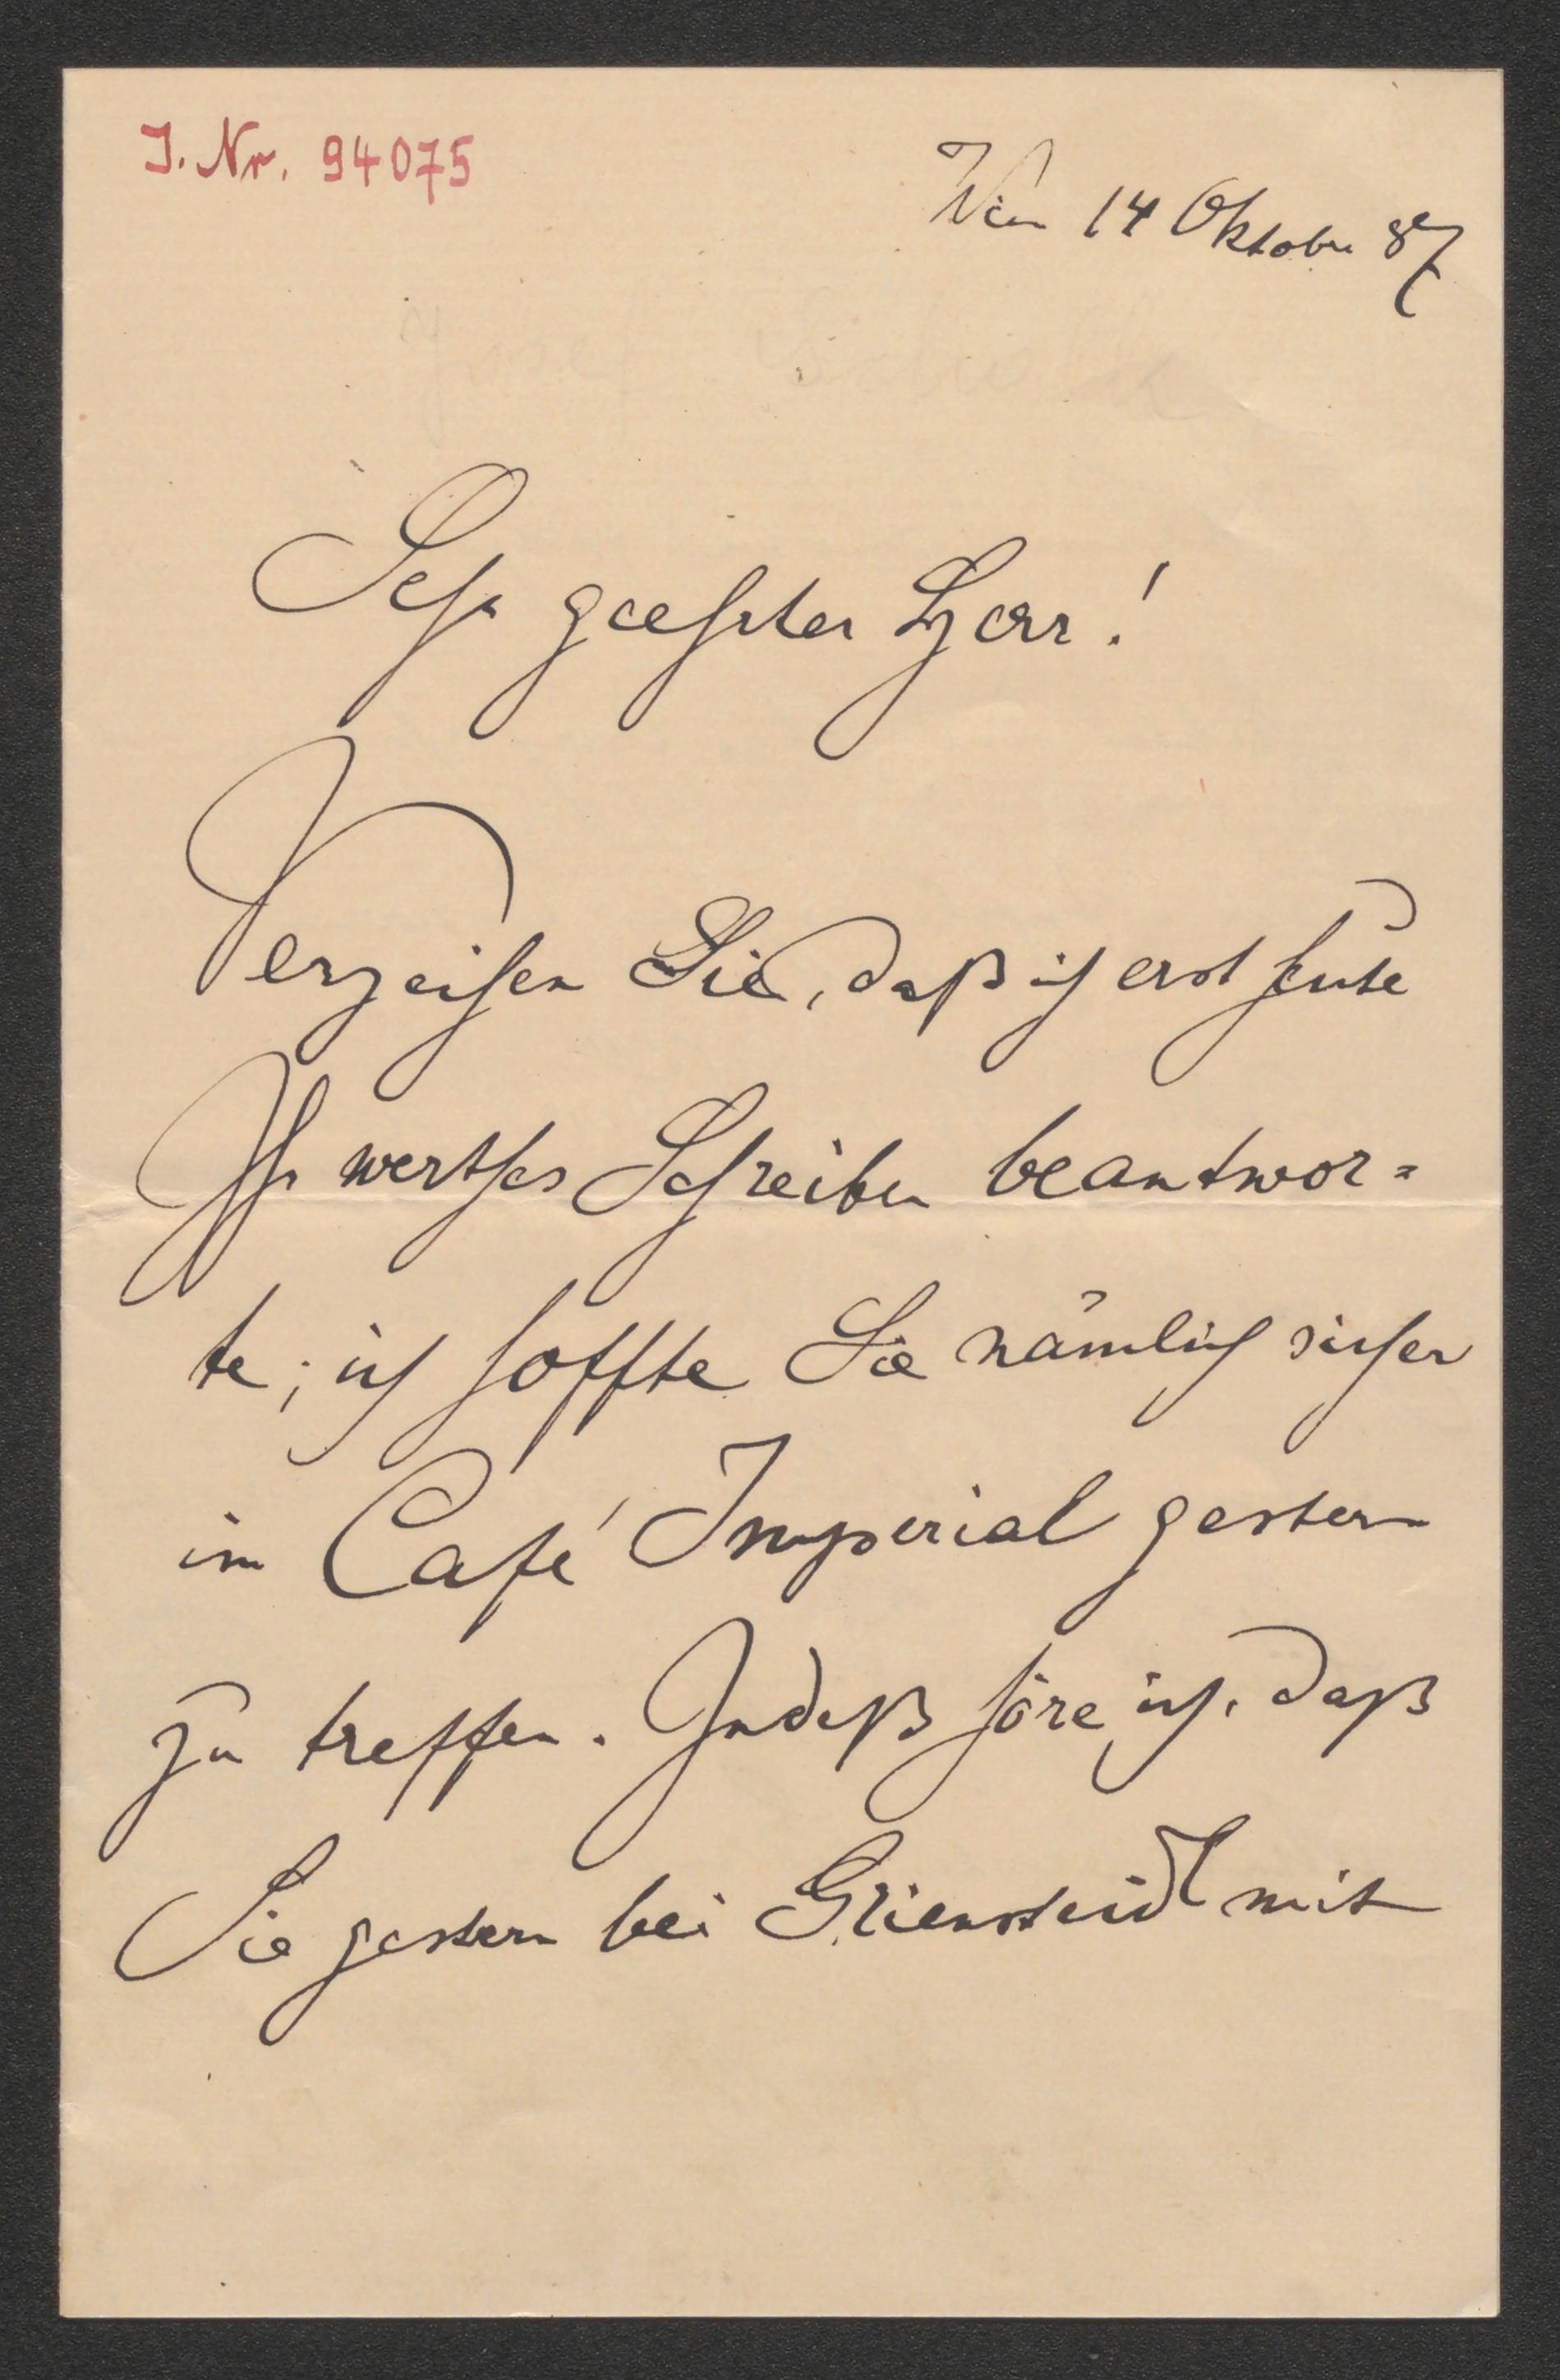 J. Nr. 94075
Wien 14 Oktober 87
Sehr geehrter Herr!
Verzeihen Sie, daß ich erst heute
Ihr werthes Schreiben beantwor=
te; ich hoffte Sie nämlich sicher
im Café Imperial gestern
zu treffen. Indeß höre ich, daß
Sie gestern bei Griensteidl mit